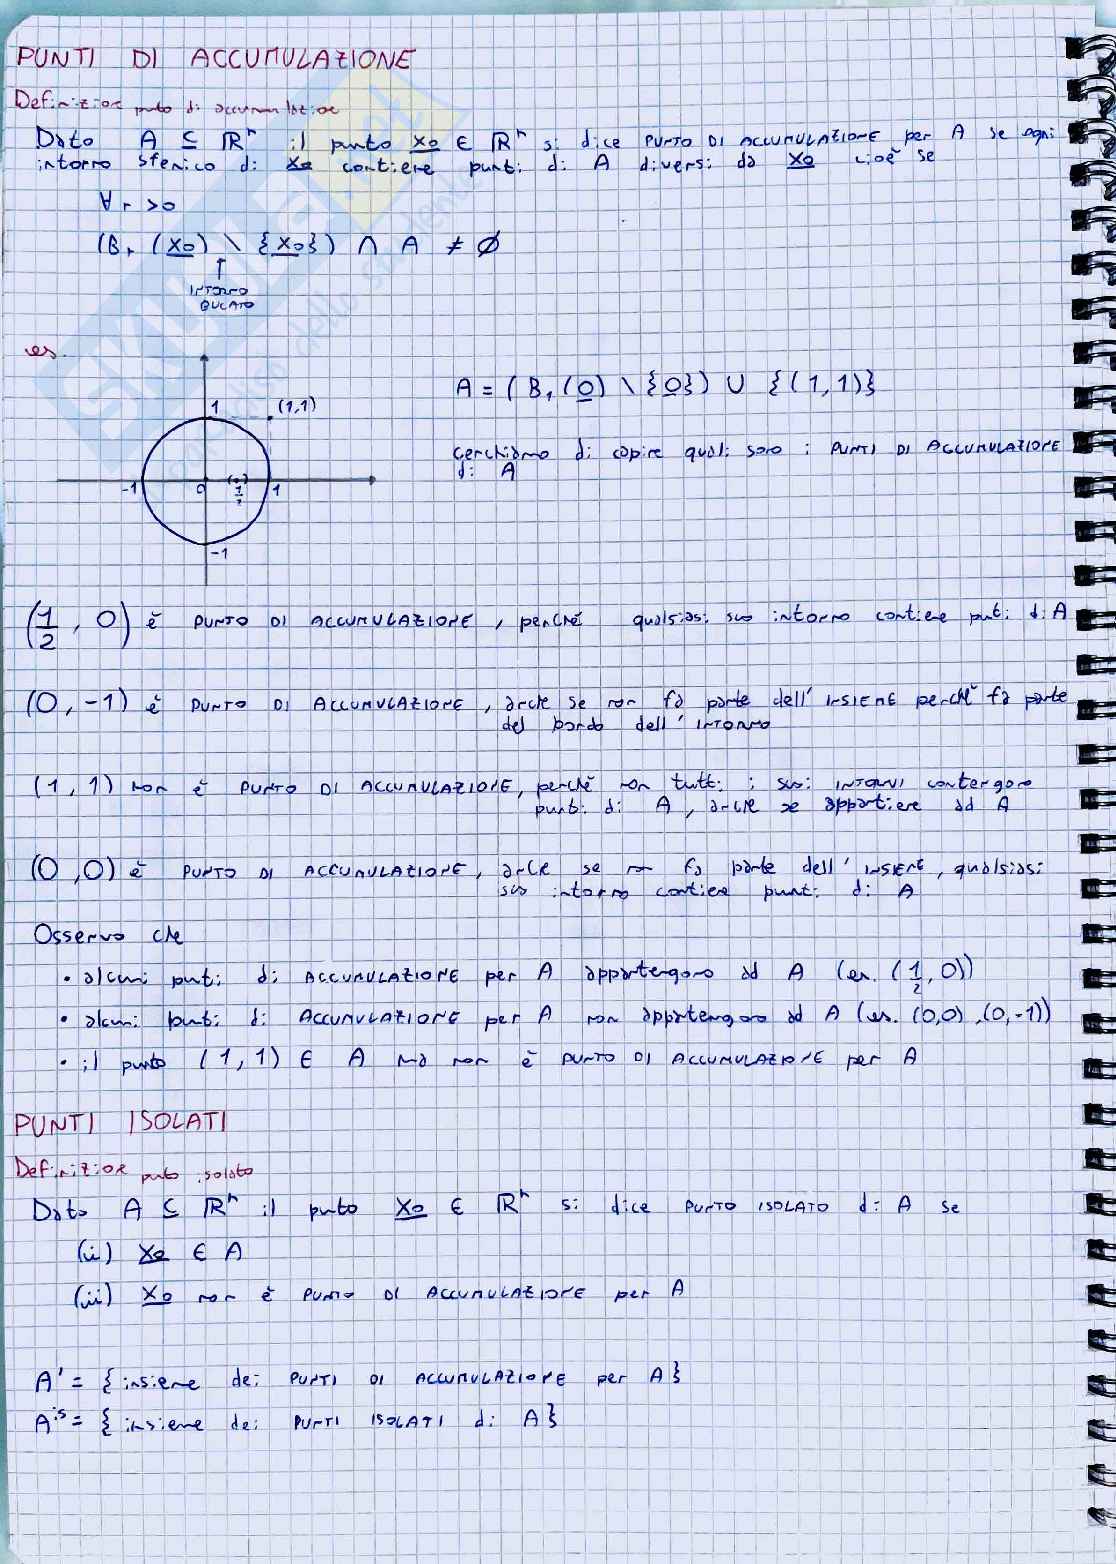 PUNTI DI ACCUMULAZIONE
Definizione punto di accumulazione
Dato A ⊆ ℝⁿ il punto x₀ ∈ ℝⁿ si dice PUNTO DI ACCUMULAZIONE per A se ogni
intorno sferico di x₀ contiene punti di A diversi da x₀ cioè se
∀ r > 0
(Bᵣ (x₀) \ {x₀}) ∩ A ≠ ∅
↑
INTORNO
BUCATO
es.
1
(1,1)
-1
0
1/2
1
-1
A = (B₁ (0) \ {0}) ∪ {(1,1)}
cerchiamo di capire quali sono i PUNTI DI ACCUMULAZIONE
di A
(1/2, 0) è PUNTO DI ACCUMULAZIONE, perché qualsiasi suo intorno contiene punti di A
(0, -1) è PUNTO DI ACCUMULAZIONE, anche se non fa parte dell'INSIEME perché fa parte
del bordo dell'INTORNO
(1, 1) non è PUNTO DI ACCUMULAZIONE, perché non tutti i suoi INTORNI contengono
punti di A, anche se appartiene ad A
(0,0) è PUNTO DI ACCUMULAZIONE, anche se non fa parte dell'INSIEME, qualsiasi
suo intorno contiene punti di A
Osservo che
• alcuni punti di ACCUMULAZIONE per A appartengono ad A (es. (1/2, 0))
• alcuni punti di ACCUMULAZIONE per A non appartengono ad A (es. (0,0), (0,-1))
• il punto (1,1) ∈ A ma non è PUNTO DI ACCUMULAZIONE per A
PUNTI ISOLATI
Definizione punto isolato
Dato A ⊆ ℝⁿ il punto x₀ ∈ ℝⁿ si dice PUNTO ISOLATO di A se
(i) x₀ ∈ A
(ii) x₀ non è PUNTO DI ACCUMULAZIONE per A
A' = {insieme dei PUNTI DI ACCUMULAZIONE per A}
Aⁱˢ = {insieme dei PUNTI ISOLATI di A}